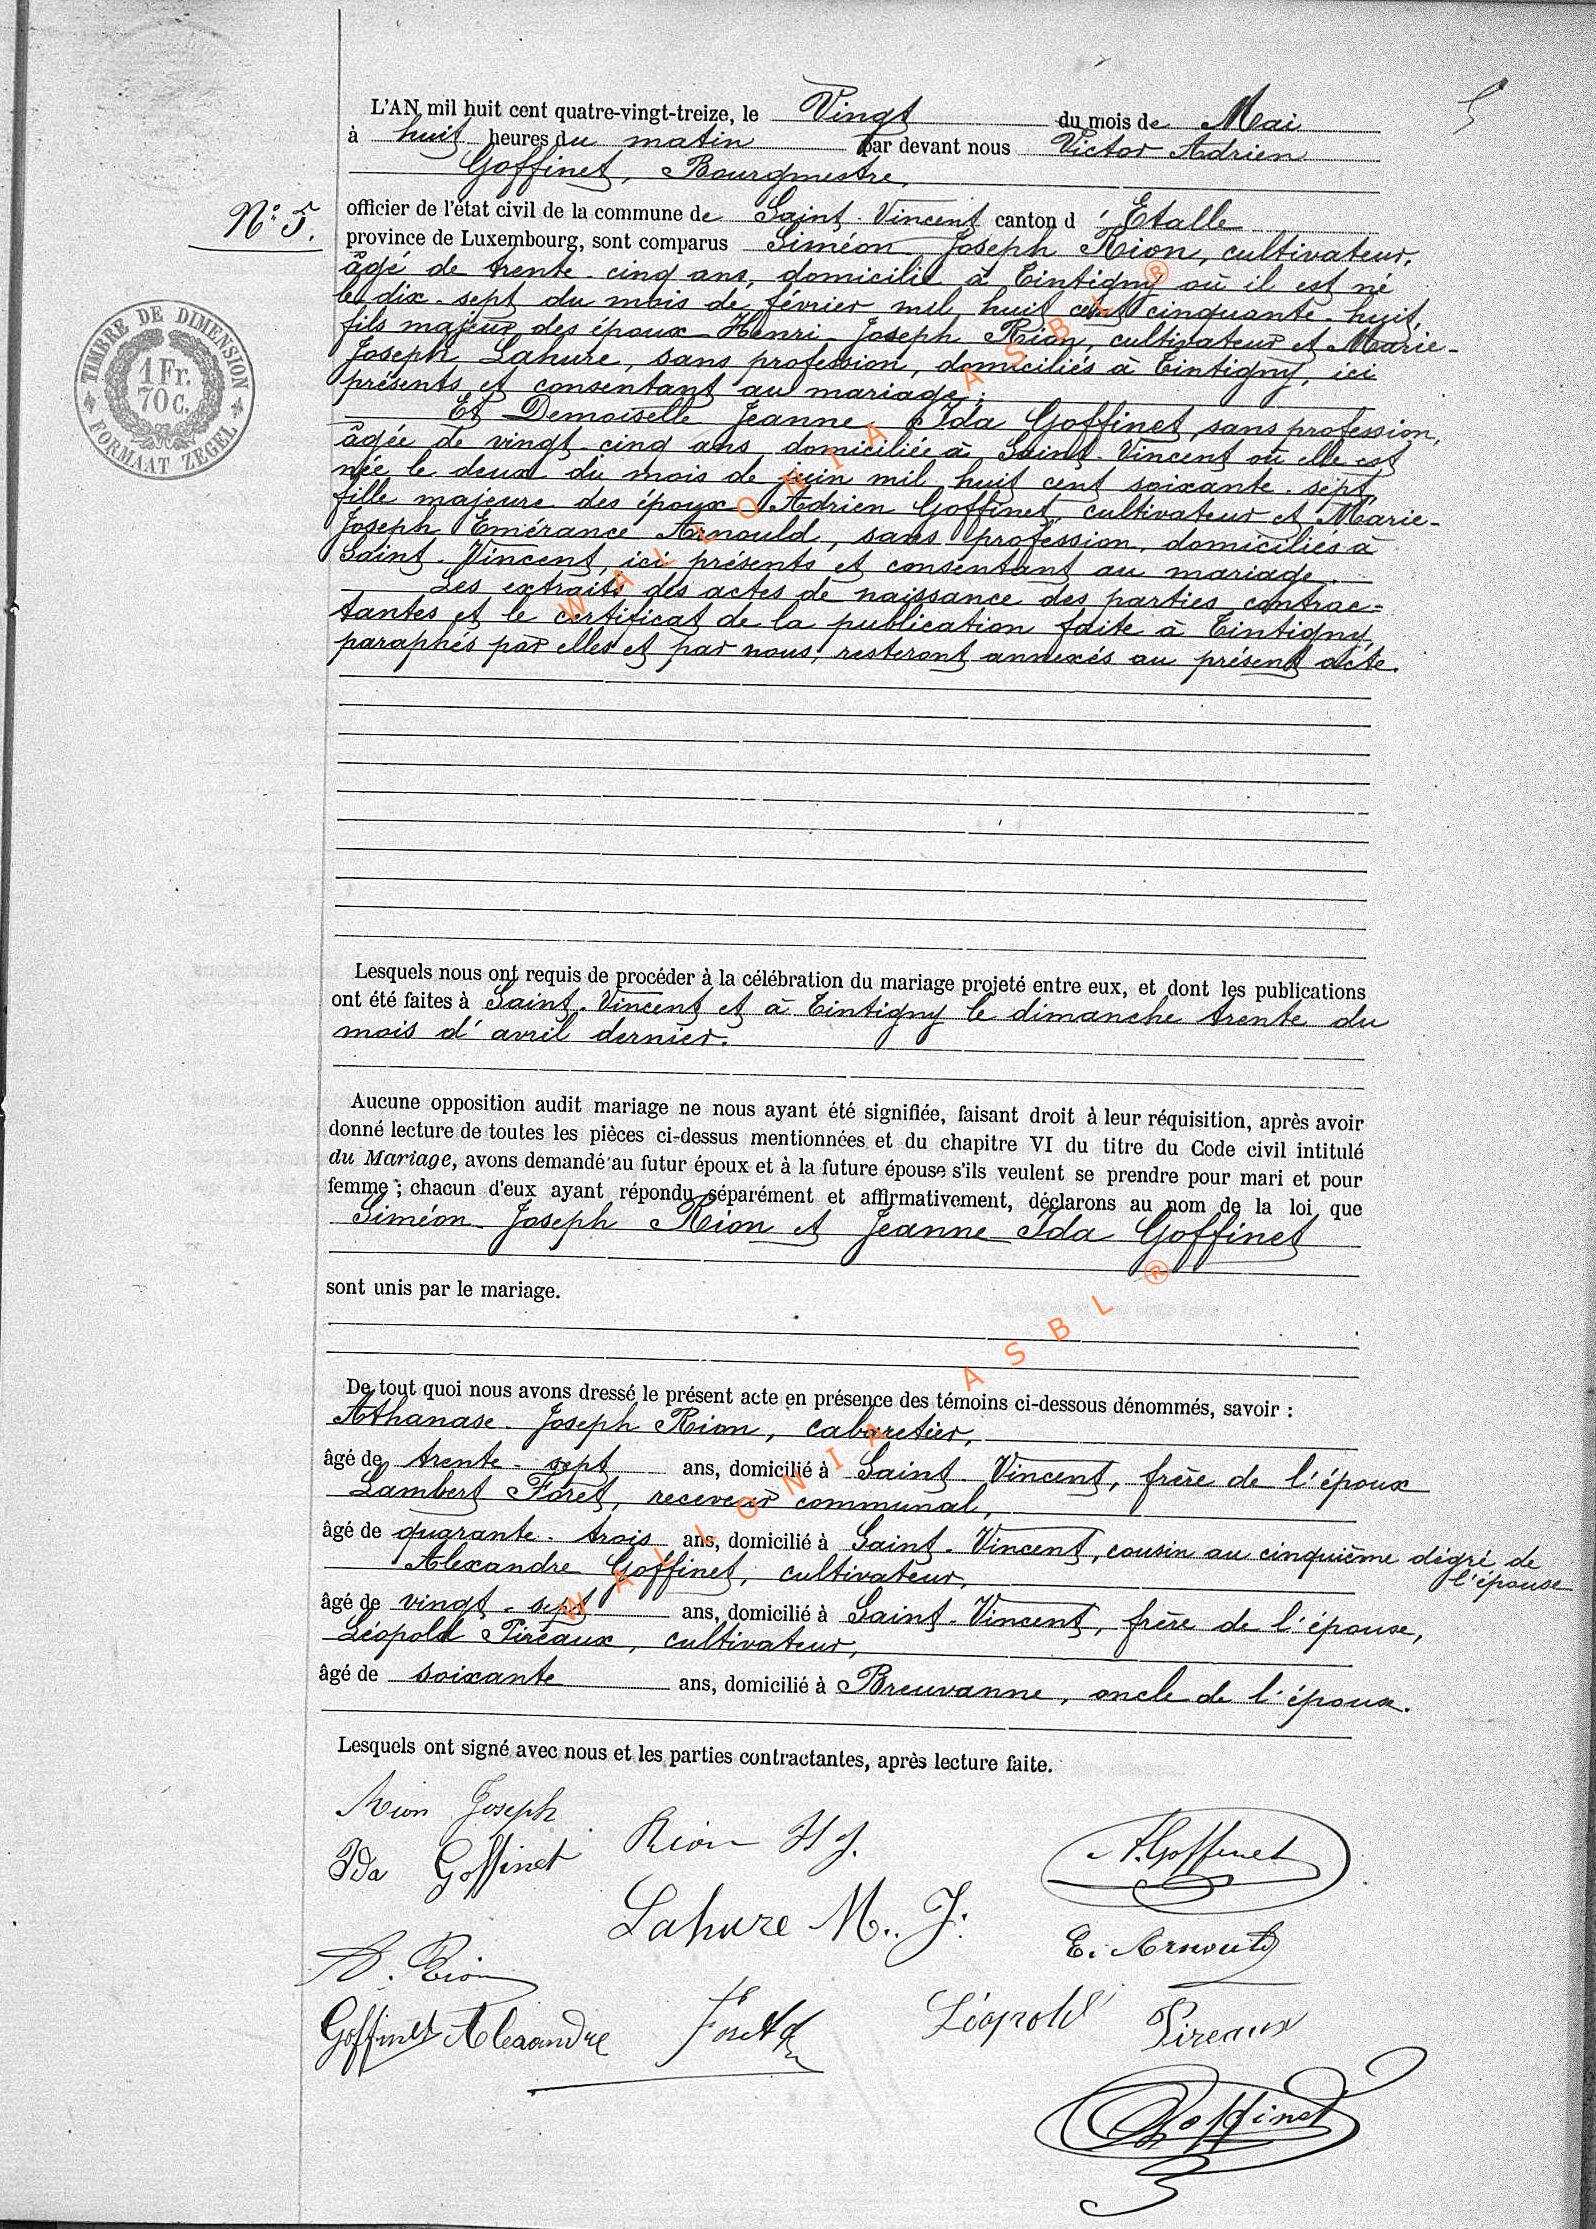 5
L'AN mil huit cent quatre-vingt-treize, le Vingt du mois de Mai
à huit heures du matin par devant nous Victor Adrien
Goffinet, Bourgmestre,
N° 5.
officier de l'état civil de la commune de Saint-Vincent canton d'Etalle
province de Luxembourg, sont comparus Siméon-Joseph Rion, cultivateur,
âgé de trente-cinq ans, domicilié à Tintigny où il est né
le dix-sept du mois de février mil huit cent cinquante-huit,
fils majeur des époux Henri-Joseph Rion, cultivateur et Marie-
Joseph Lahure, sans profession, domiciliés à Tintigny, ici
présents et consentant au mariage;
Et Demoiselle Jeanne-Ida Goffinet, sans profession,
âgée de vingt-cinq ans, domiciliée à Saint-Vincent où elle est
née le deux du mois de juin mil huit cent soixante-sept,
fille majeure des époux Adrien Goffinet, cultivateur et Marie-
Joseph Emérance Arnould, sans profession, domiciliés à
Saint-Vincent, ici présents et consentant au mariage.
Les extraits des actes de naissance des parties contrac=
tantes et le certificat de la publication faite à Tintigny,
paraphés par elles et par nous, resteront annexés au présent acte.
TIMBRE DE DIMENSION
1 Fr.
70 C.
FORMAAT ZEGEL
Lesquels nous ont requis de procéder à la célébration du mariage projeté entre eux, et dont les publications
ont été faites à Saint-Vincent et à Tintigny le dimanche trente du
mois d'avril dernier.
Aucune opposition audit mariage ne nous ayant été signifiée, faisant droit à leur réquisition, après avoir
donné lecture de toutes les pièces ci-dessus mentionnées et du chapitre VI du titre du Code civil intitulé
du Mariage, avons demandé au futur époux et à la future épouse s'ils veulent se prendre pour mari et pour
femme ; chacun d'eux ayant répondu séparément et affirmativement, déclarons au nom de la loi que
Siméon-Joseph Rion et Jeanne-Ida Goffinet
sont unis par le mariage.
De tout quoi nous avons dressé le présent acte en présence des témoins ci-dessous dénommés, savoir :
Athanase-Joseph Rion, cabaretier,
âgé de trente-sept ans, domicilié à Saint-Vincent, frère de l'époux
Lambert Foret, receveur communal,
âgé de quarante-trois ans, domicilié à Saint-Vincent, cousin au cinquième dégré de
l'épouse
Alexandre Goffinet, cultivateur,
âgé de vingt-sept ans, domicilié à Saint-Vincent, frère de l'épouse,
Léopold Pireaux, cultivateur,
âgé de soixante ans, domicilié à Breuvanne, oncle de l'époux.
Lesquels ont signé avec nous et les parties contractantes, après lecture faite.
Rion Joseph
Rion H J.
A. Goffinet
Ida Goffinet
Lahure M. J.
E. Arnould
A. Rion
Goffinet Alexandre
Foret
Léopold Pireaux
Goffinet
WALLONIA ASBL ®
WALLONIA ASBL ®